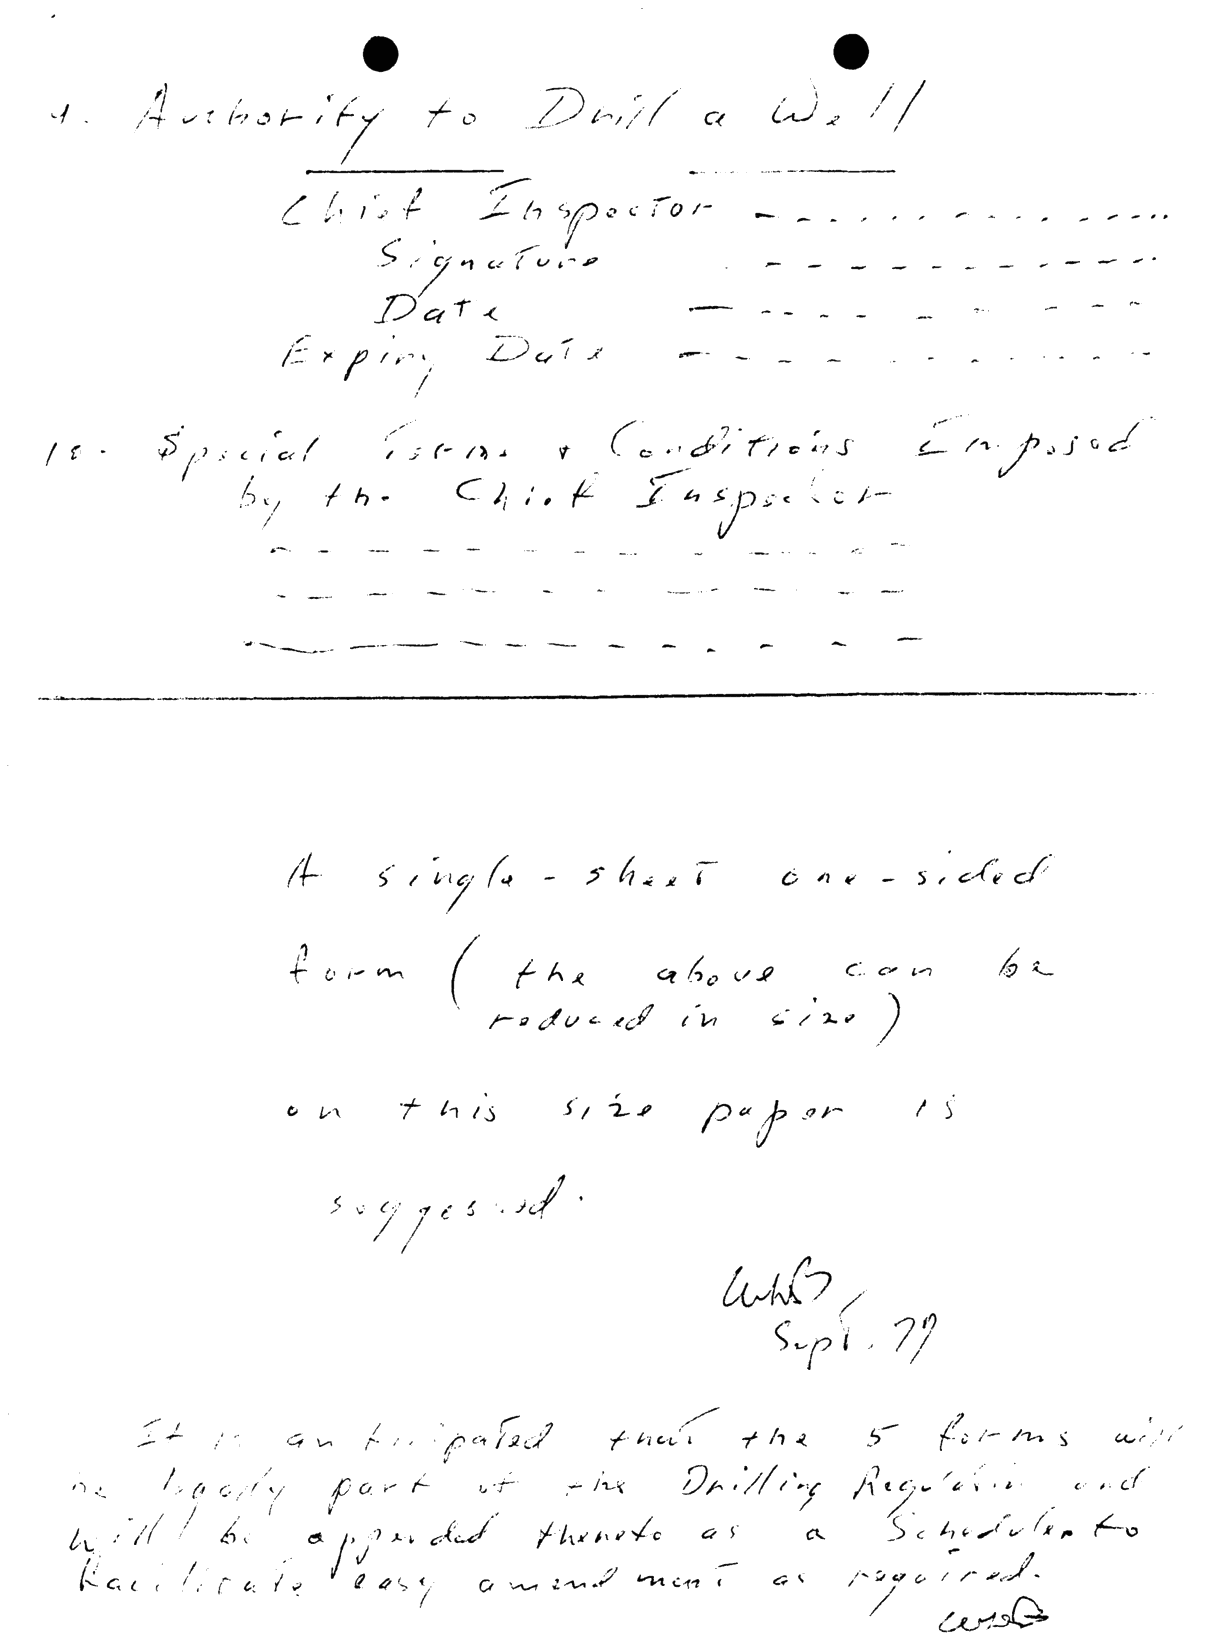 9. Authority to Drill a Well
Chief Inspector - - - - - - - - - - - -
Signature - - - - - - - - - - - -
Date - - - - - - - - - -
Expiry Date - - - - - - - - - - - -
10. Special Terms + Conditions Imposed
by the Chief Inspector
- - - - - - - - - - - -
- - - - - - - - - - - -
- - - - - - - - - - - -
A single-sheet one-sided
form ( the above can be
reduced in size )
on this size paper is
suggested.
WHS
Sept. 79
It is anticipated that the 5 forms will
be legally part of the Drilling Regulation and
will be appended thereto as a Schedule to
facilitate easy amendment as required.